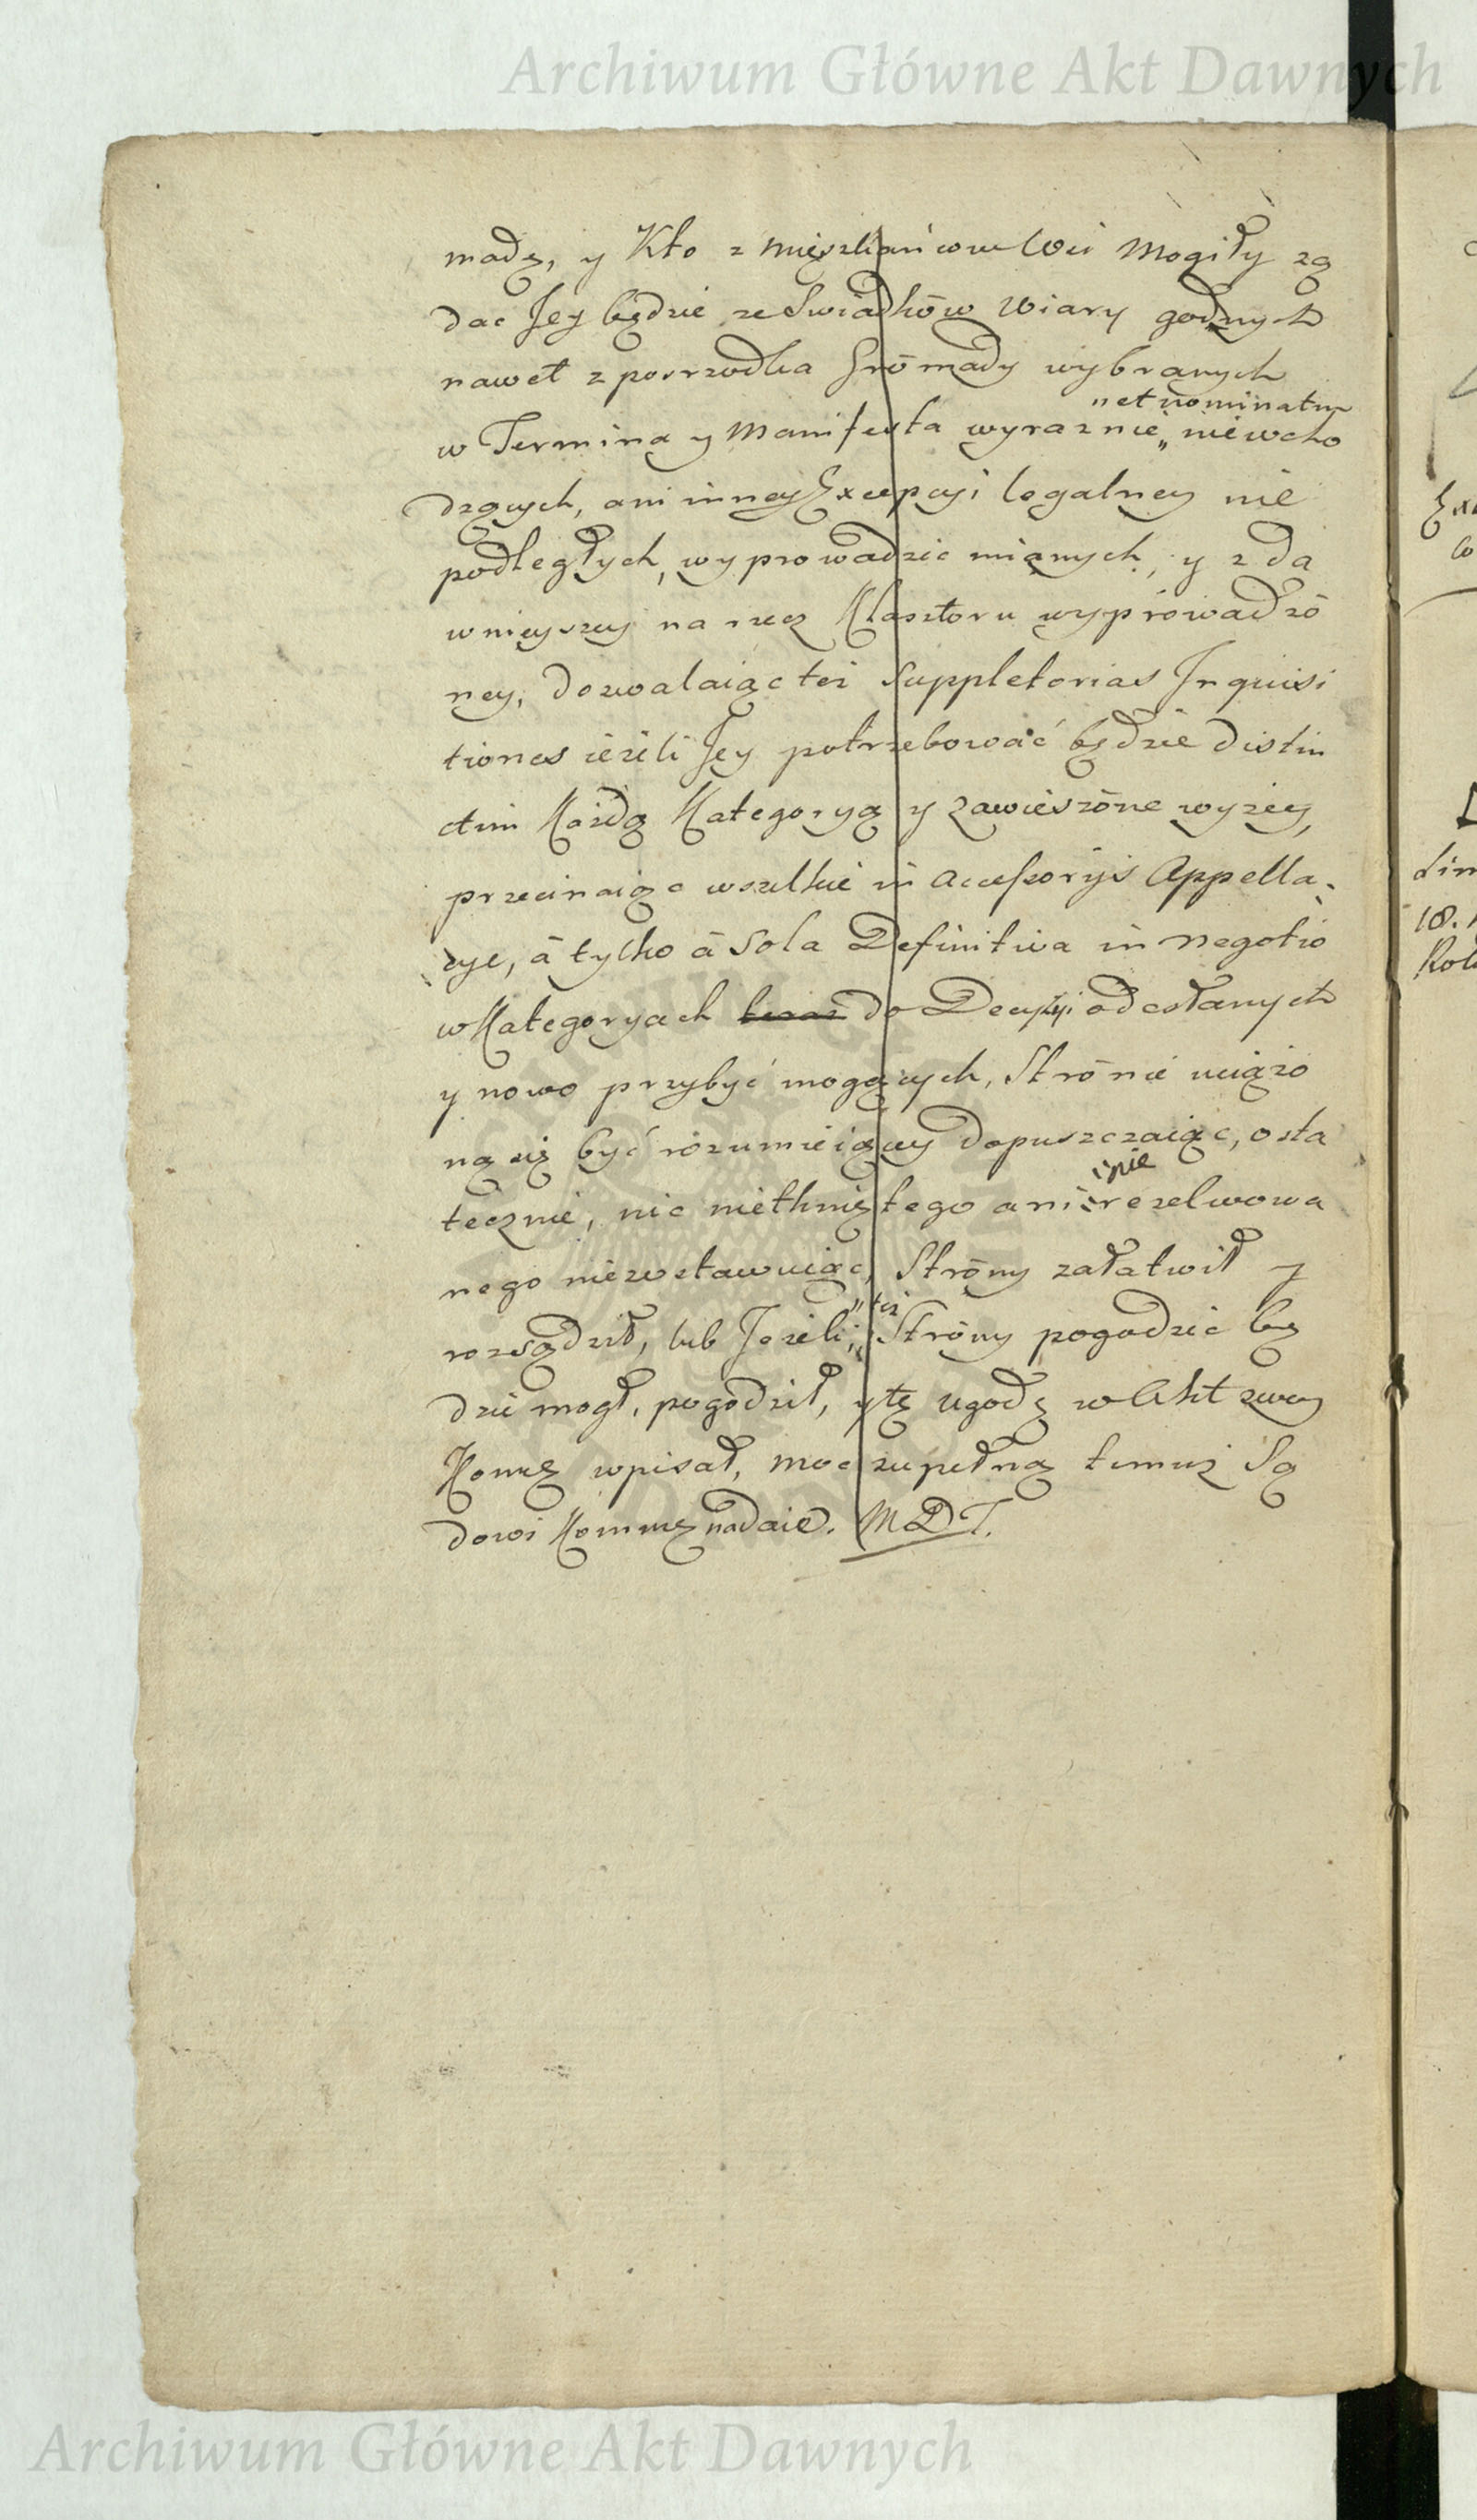 Archiwum Główne Akt Dawnych
madę, y Kto z mięszkańcow Wsi Mogiły zą
dac Jey będzie ze Swiadków Wiary godnych
nawet z posrzodka Grómady wybranych
"et nominatim
w Termina y Manifesta wyraznie „ niewcho
dzących, ani inney Excepcyi legalney nie
podległych, wyprowadzic mianych, y z da
wnieyszey na rzecz Klasztoru wyprowadzó
ney, dozwalaiąc też Suppletorias Inquisi
tiones ieżeli Jey potrzebować będzie distin
ctim Każdą Kategoryą y zawieszóne wyżey,
przecinaiąc wszelkie in Accessorijs Appella
cye, á tylko á Sola Definitiva in negotio
w Kategoryach teraz do Decyzyi odesłanych
y nowo przybyć mogących, Strónie uciążo
ną się być rozumieiącey dopuszczaiąc, osta
tecznie, nic nietkniętego ani rezelwowa
nie
nego niezostawuiąc, Stróny załatwił y
rozsądził, lub Jeżeli „ Stróny pogodzic bę
" też
dzie mogł, pogodził, y tę ugodę w Akt swey
Kommę wpisał, moc zupełną temuż Są
dowi Kommę nadaie. MDT.
Archiwum Główne Akt Dawnych